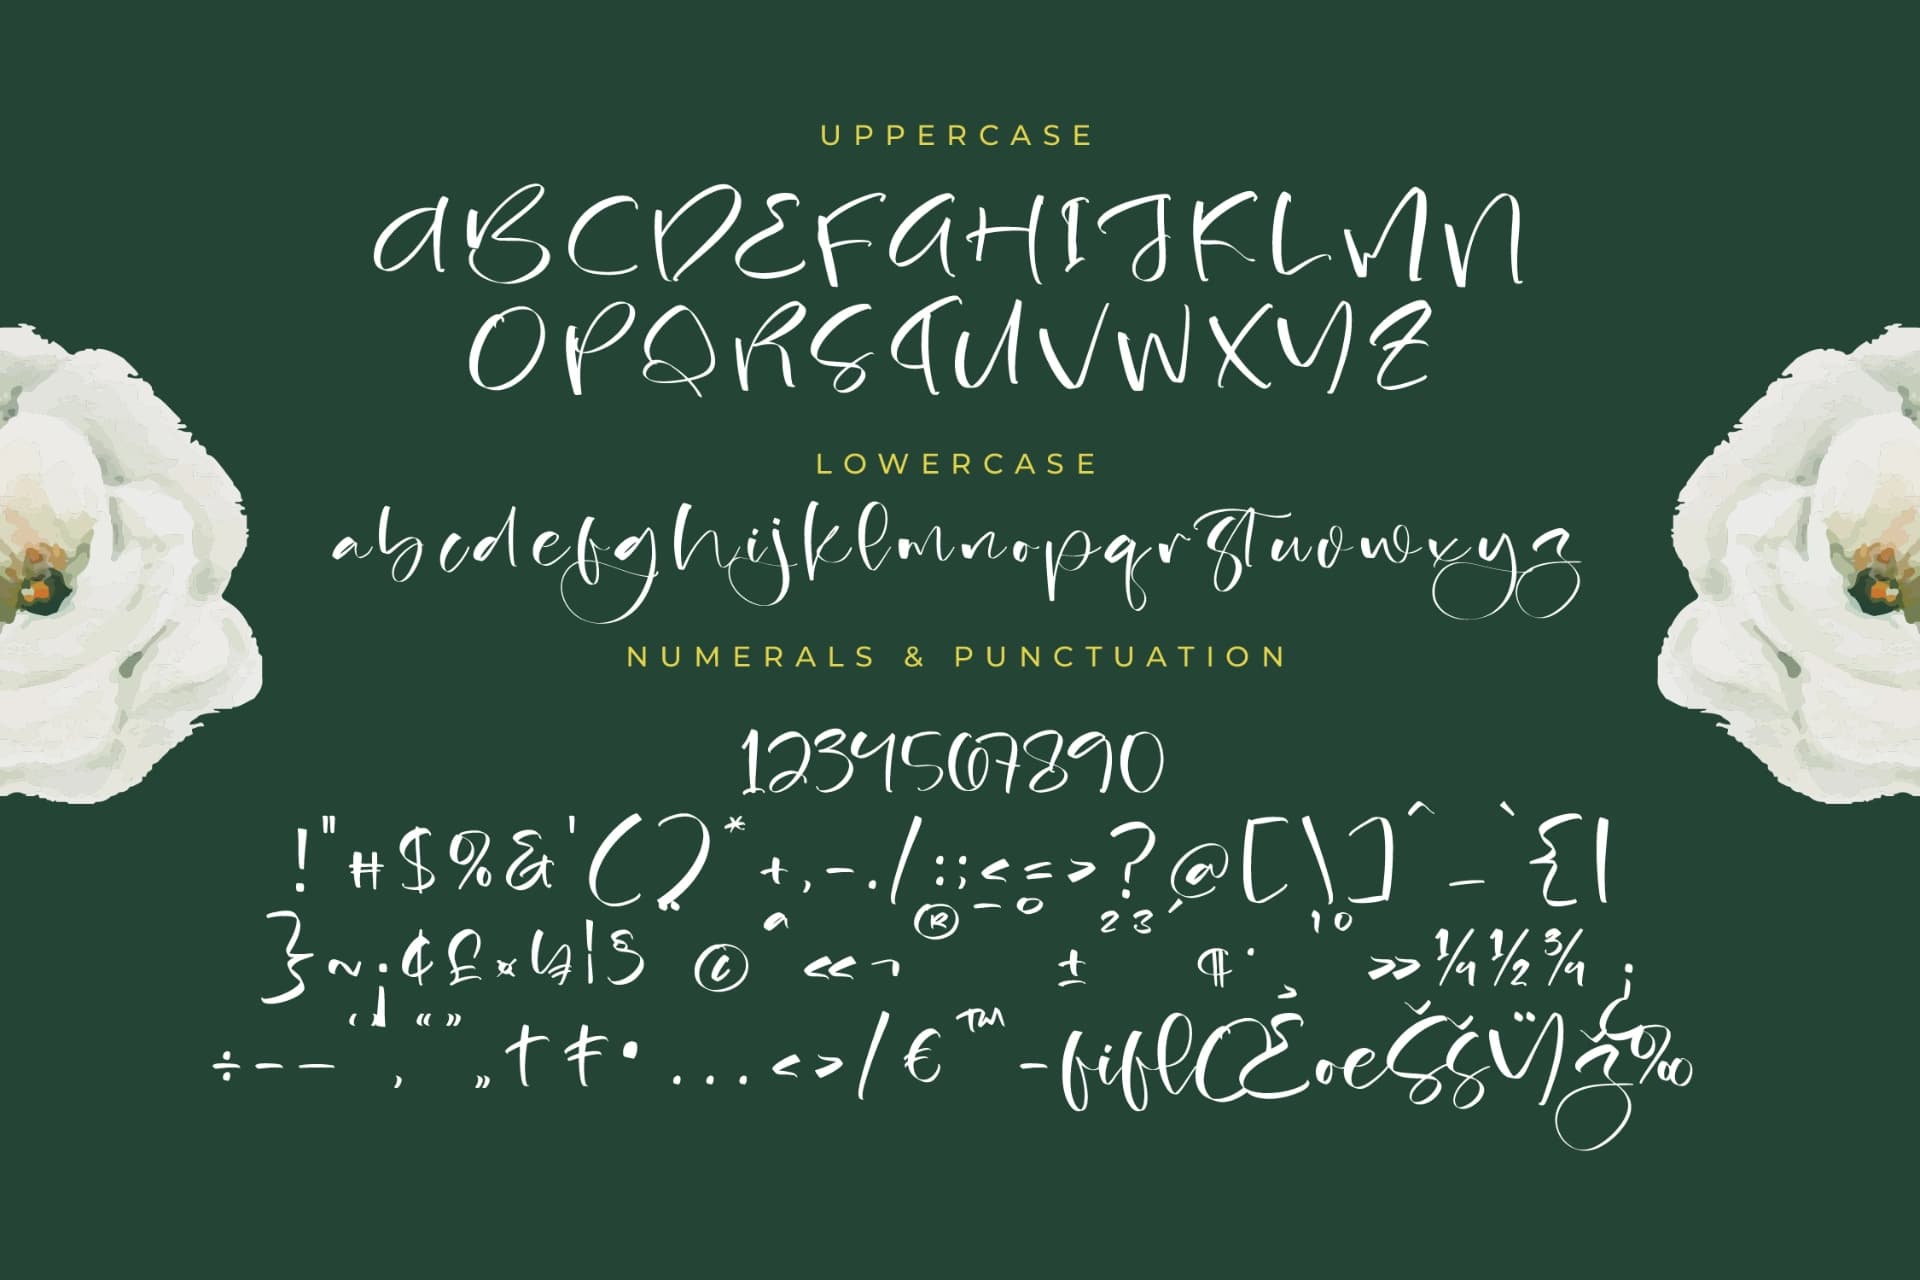 UPPERCASE
ABCDEFGHIJKLMN
OPQRSTUVWXYZ
LOWERCASE
abcdefghijklmnopqrstuvwxyz
NUMERALS & PUNCTUATION
1234567890
!"#$%&'()*+,-./:;<=>?@[\]^_`{|
}~¡¢£¤¥¦§¨©ª«¬®¯°±²³´¶·¸¹º»¼½¾¿
÷–—‘’‚“”„†‡•…‹›⁄€™−fiflŒœŠšŸž‰